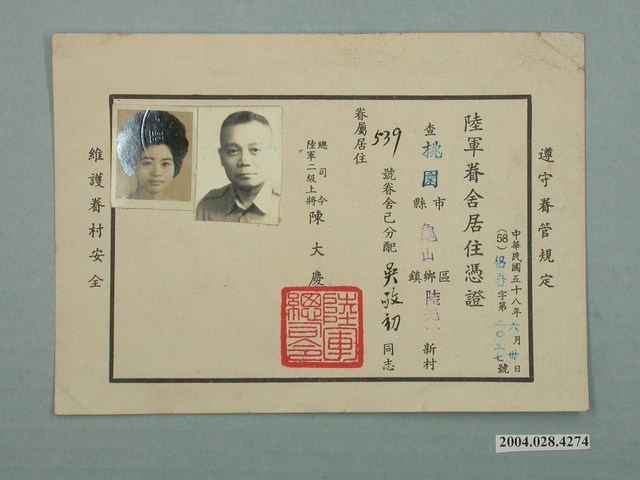 遵守眷管規定
中華民國五十八年六月卅日
(58)字第二〇三七號
陸軍眷舍居住憑證
查桃園縣市龜山鎮鄉區陸光新村
539號眷舍已分配吳敬初同志
眷屬居住
總司令
陸軍二級上將陳大慶
陸軍總司令
維護眷村安全
2004.028.4274